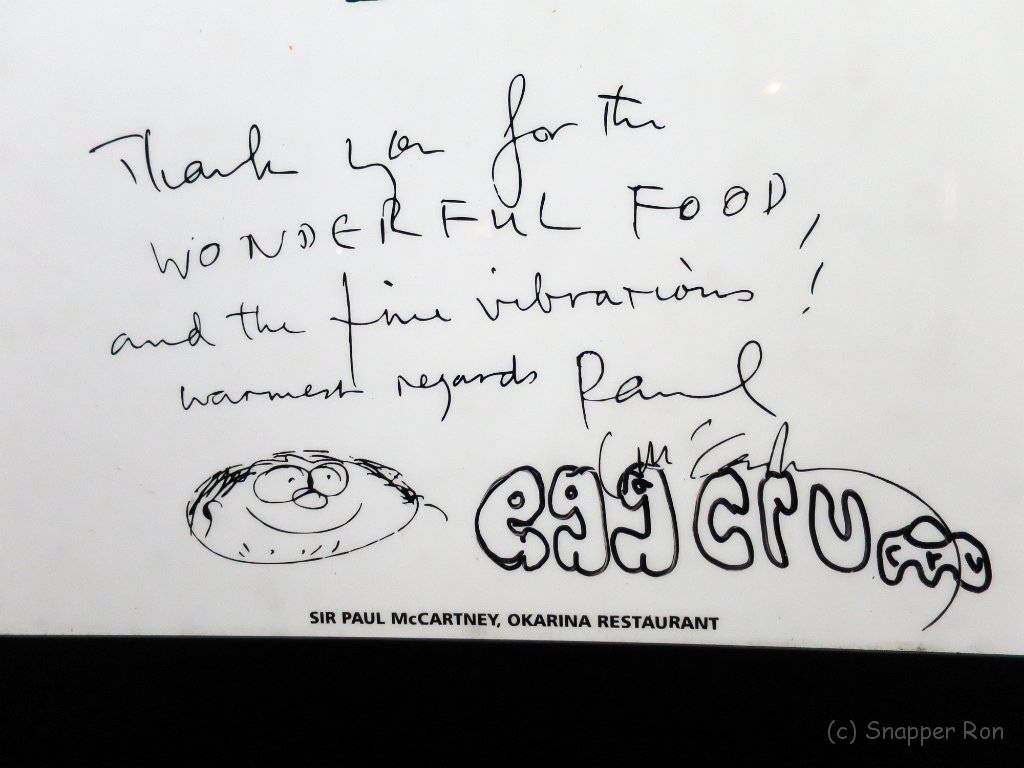 Thank you for the
WONDERFUL FOOD,
and the fine vibrations!
warmest regards Paul
egg cru
cru
SIR PAUL McCARTNEY, OKARINA RESTAURANT
(c) Snapper Ron